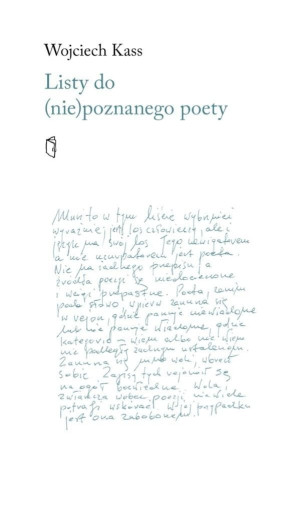 Wojciech Kass
Listy do
(nie)poznanego poety
Musi to w tym liście wybrzmieć
wyraźniej jest los człowieczy, ale i
język ma swój los. Jego nawigatorem
a nie uzurpatorem jest poeta.
Nie ma żadnego przepisu, a
źródła poezji są niedocieczone
i wciąż przepastne. Poeta, zanim
poda słowo, wpierw zanurza się
w rejon, gdzie panuje niewiadome
lub nie panuje wiadome, gdzie
kategorie – wiem albo nie wiem
nie podległy żadnym ustaleniom.
Zanurza się mimo woli, wbrew
sobie. Zapisy tych rejonów są
na ogół bezwiedne. Wola,
zwłaszcza wobec poezji niewiele
potrafi wskórać. W jej przypadku
jest ona zabobonem.